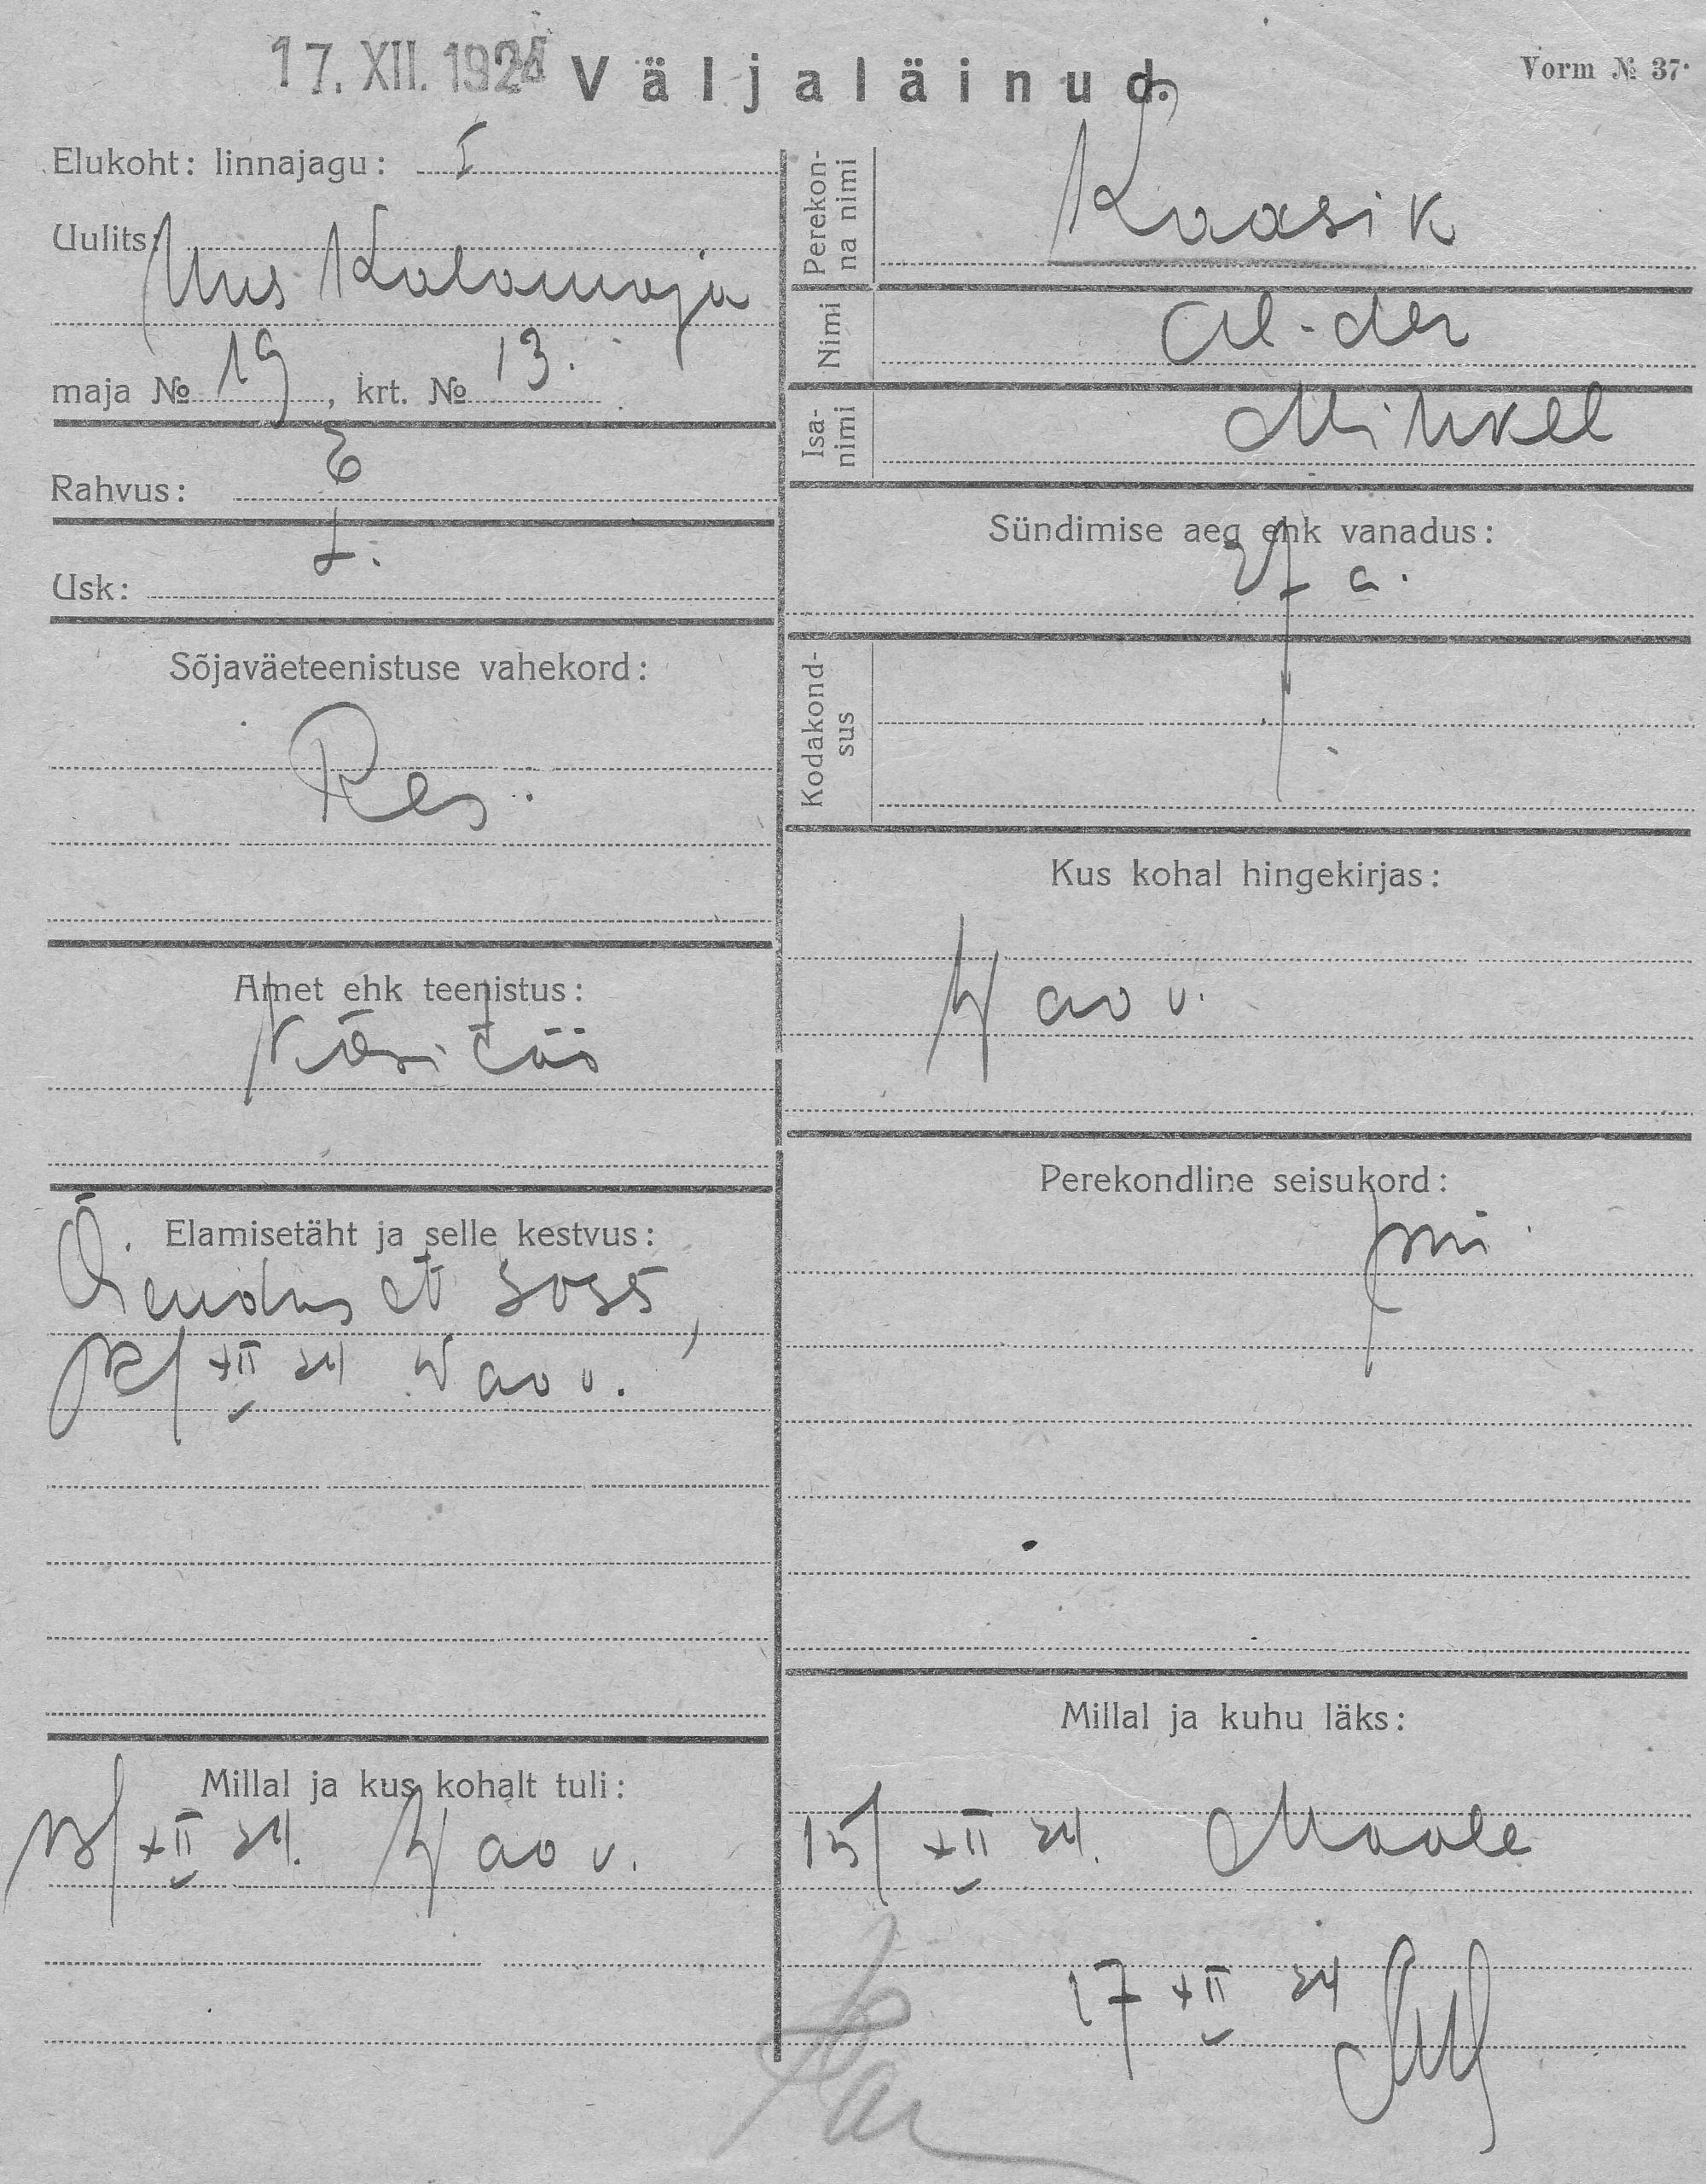 17. XII. 1924
Väljaläinud.
Vorm № 37.
Elukoht: linnajagu: I
Uulits: Uus Kalamaja
maja № 19, krt. № 13.
Rahvus: E
Usk: L.
Sõjaväeteenistuse vahekord:
Res.
Amet ehk teenistus:
Käsitöö
Elamisetäht ja selle kestvus:
XII 24
Millal ja kus kohalt tuli:
13/XII 24.
Perekonna nimi
Kaasik
Nimi
Al-der
Isanimi
Mihkel
Sündimise aeg ehk vanadus:
27 a.
Kodakondsus
Kus kohal hingekirjas:
Perekondline seisukord:
Millal ja kuhu läks:
15/XII 24. Maale
17 XII 24